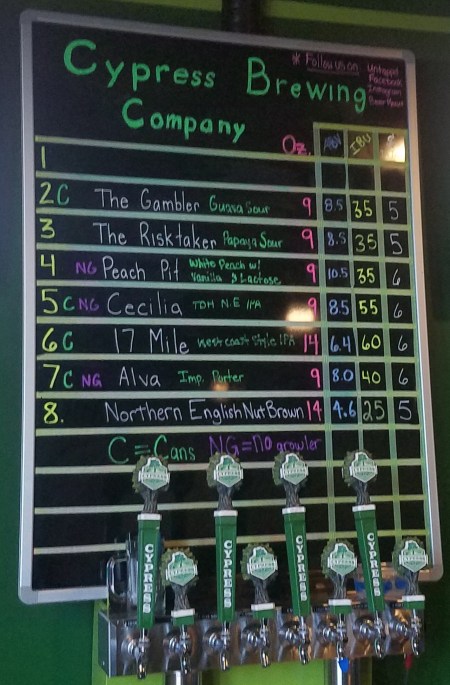 Cypress Brewing
Company
* Follow us on: Untappd
Facebook
Instagram
Beer Menus
Oz. ABV IBU $
1
2 C The Gambler Guava Sour 9 8.5 35 5
3 The Risktaker Papaya Sour 9 8.5 35 5
4 NG Peach Pit White Peach w/ Vanilla & Lactose 9 10.5 35 6
5 C NG Cecilia TDH N.E IPA 9 8.5 55 6
6 C 17 Mile West Coast Style IPA 14 6.4 60 6
7 C NG Alva Imp. Porter 9 8.0 40 6
8. Northern English Nut Brown 14 4.6 25 5
C = Cans NG = no growler
CYPRESS
CYPRESS
CYPRESS
CYPRESS